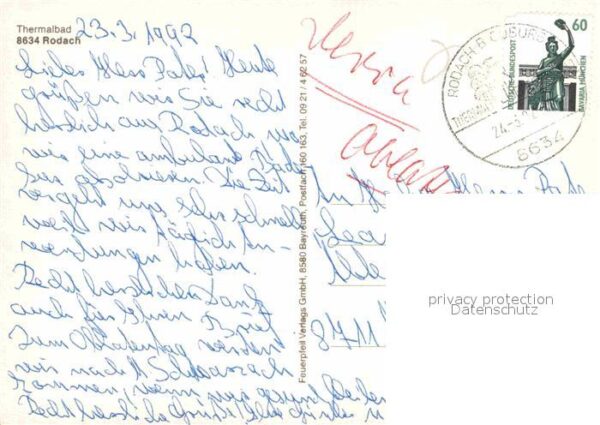 Thermalbad
8634 Rodach
23.3.1992
Liebes Herr Pater! Heute
grüßen wir Sie recht
herzlich aus Rodach wo
wir eine ambulante Bade
kur absolvieren. Die Zeit
vergeht uns sehr schnell
weil wir täglich An-
wendungen haben.
Recht herzlichen Dank
auch für Ihren Brief
Zum Oblatentag werden
wir nach Schwarzach
kommen, wenn wir gesund bleiben
Recht herzliche Grüße
Feuerpfeil Verlags GmbH, 8580 Bayreuth, Postfach 160 163, Tel. 09 21 / 4 62 57
RODACH B COBURG
THERMAL
24.-3.
8634
60
DEUTSCHE BUNDESPOST
BAVARIA MÜNCHEN
Herrn
8711
privacy protection
Datenschutz